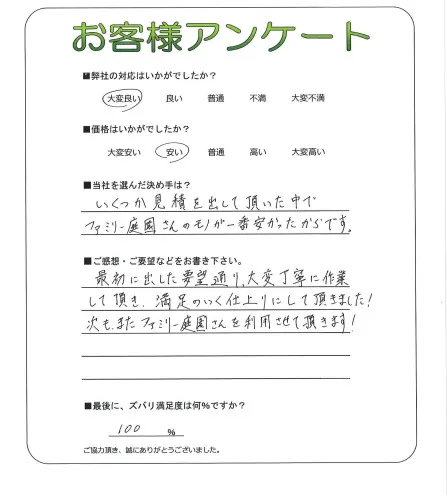 お客様アンケート
■弊社の対応はいかがでしたか？
大変良い 良い 普通 不満 大変不満
■価格はいかがでしたか？
大変安い 安い 普通 高い 大変高い
■当社を選んだ決め手は？
いくつか見積を出して頂いた中で
ファミリー庭園さんのモノが一番安かったからです。
■ご感想・ご要望などをお書き下さい。
最初に出した要望通り、大変丁寧に作業
して頂き、満足のいく仕上りにして頂きました！
次も、またファミリー庭園さんを利用させて頂きます！
■最後に、ズバリ満足度は何％ですか？
100 ％
ご協力頂き、誠にありがとうございました。